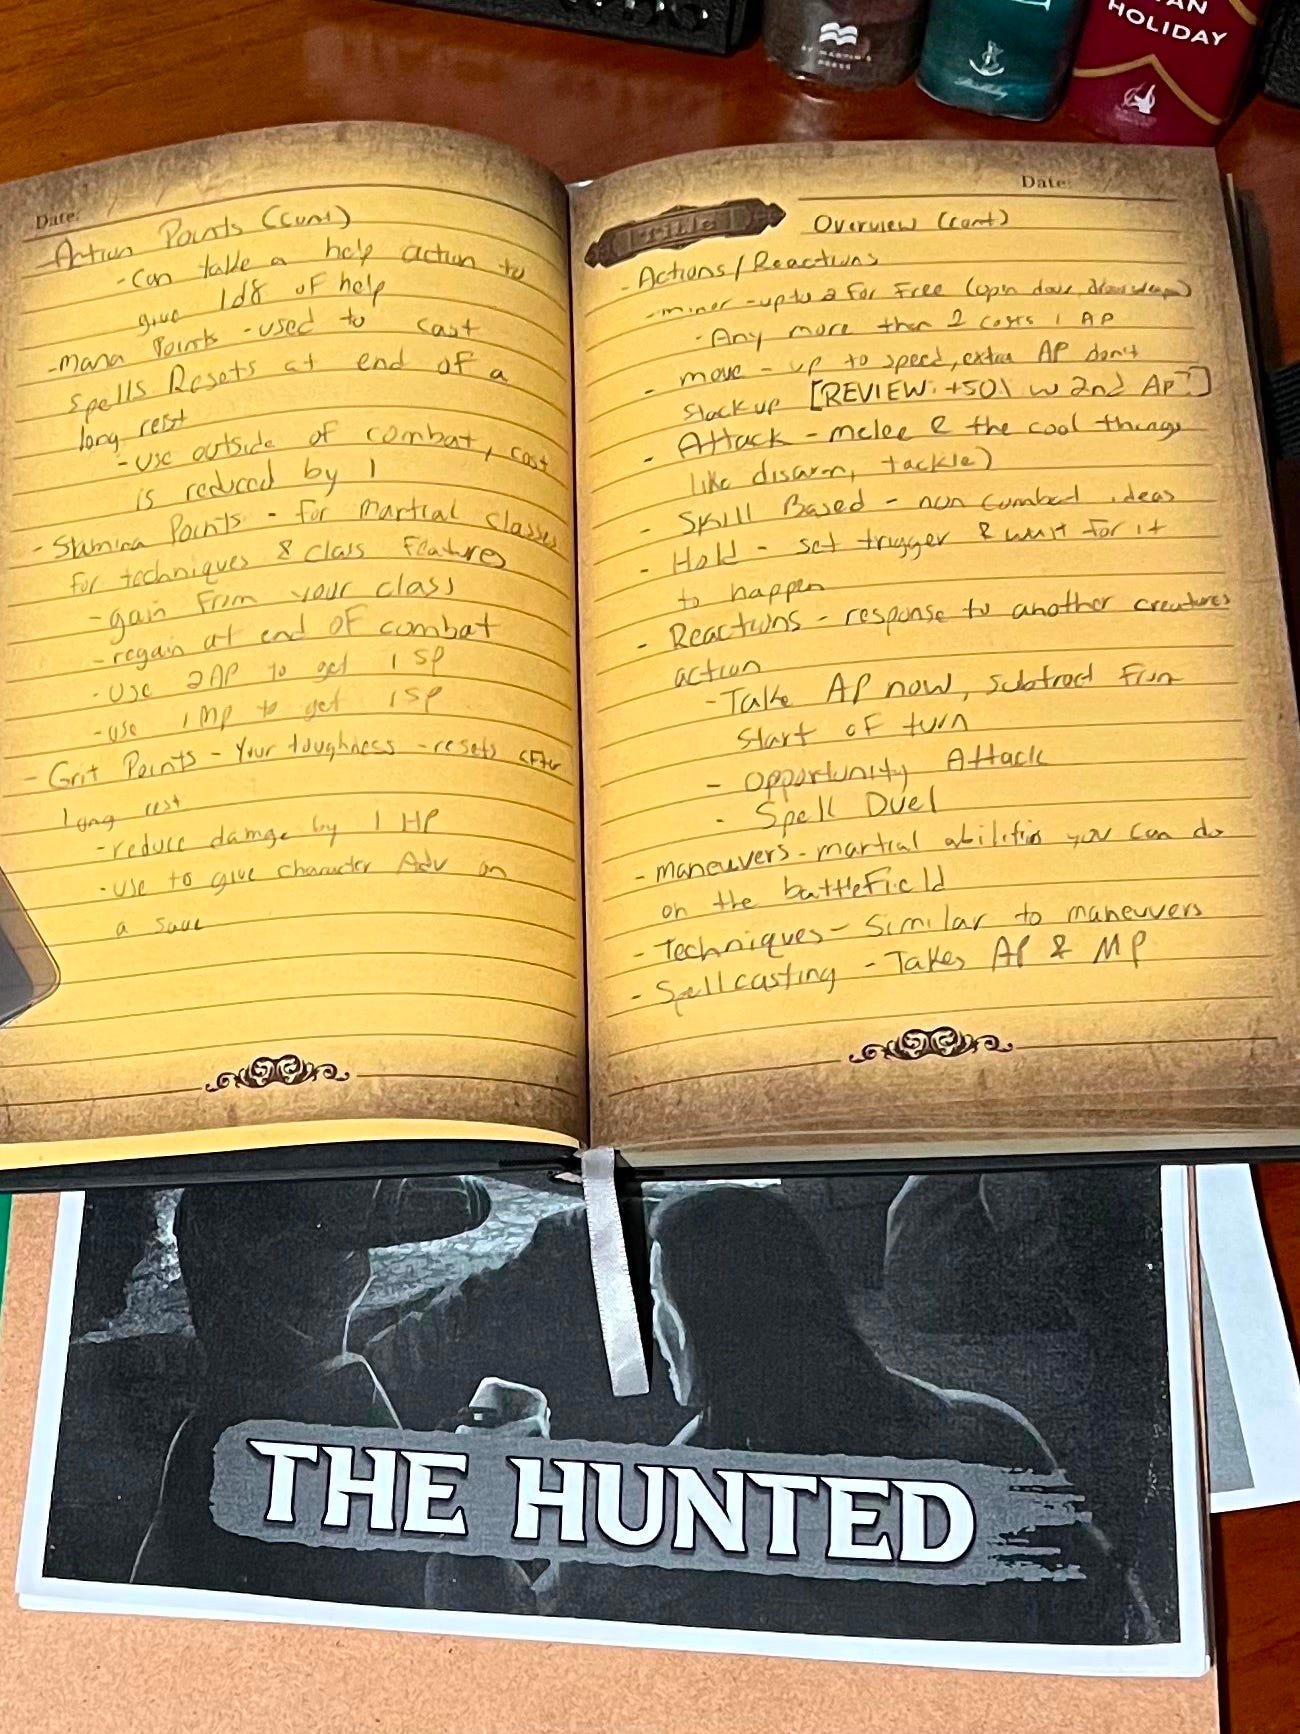 ST. MARTIN'S
PRESS
AN
HOLIDAY
Date:
-Action Points (cont)
-Can take a help action to
give 1d8 of help
-Mana Points - used to cast
spells. Resets at end of a
long rest
-use outside of combat, cost
is reduced by 1
- Stamina Points - for martial classes
for techniques & class features
-gain from your class
-regain at end of combat
-use 2AP to get 1 SP
-use 1 MP to get 1SP
- Grit Points - Your toughness - resets after
long rest
-reduce damage by 1 HP
-use to give character Adv on
a save
Date:
Title
Overview (cont)
-Actions/Reactions
-minor -up to 2 for free (open door, draw weap)
-Any more than 2 costs 1 AP
- move - up to speed, extra AP don't
stack up [REVIEW: +50% w 2nd AP?]
- Attack - melee & the cool things
like disarm, tackle)
- Skill Based - non combat ideas
- Hold - set trigger & wait for it
to happen
- Reactions - response to another creatures
action
-Take AP now, subtract from
start of turn
- Opportunity Attack
- Spell Duel
- maneuvers - martial abilities you can do
on the battlefield
- Techniques - Similar to maneuvers
- Spellcasting - Takes AP & MP
THE HUNTED